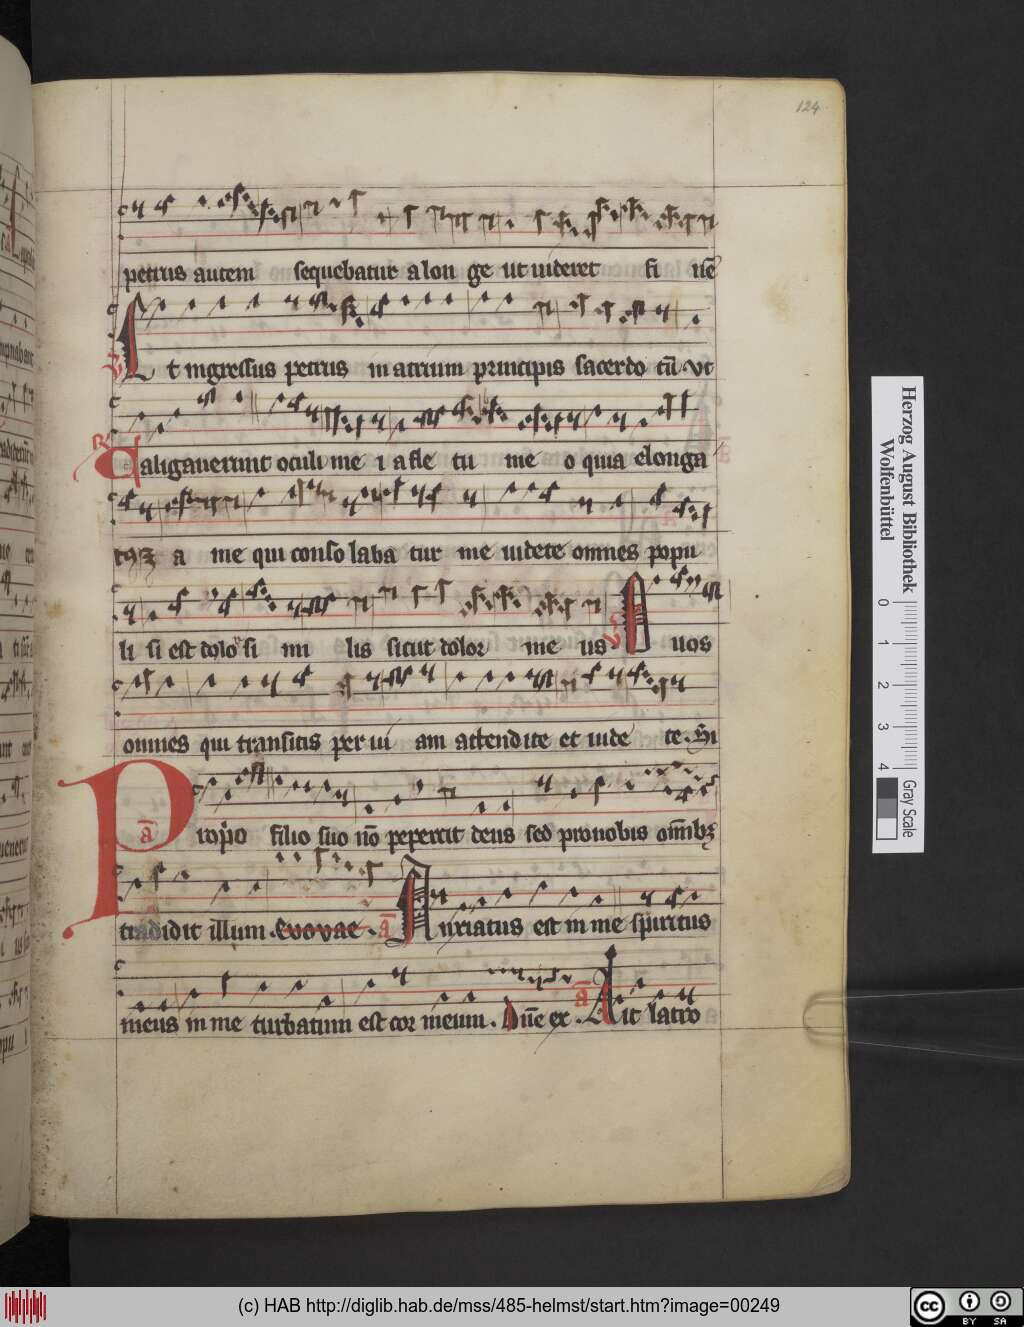 124
petrus autem sequebatur a lon ge ut uideret fi nē
Et ingressus petrus in atrium principis sacerdo tū Vt
Caligauerunt oculi me i a fle tu me o quia elonga
tꝰ ꝫ a me qui conso laba tur me uidete omnes popu
li si est dolor si mi lis sicut dolor me us O uos
omnes qui transitis per ui am attendite et uide te. Si
a Proprio filio suo nō pepercit deus sed pro nobis om̄ibꝫ
tradidit illum. Evovae. a Anxiatus est in me spiritus
meus in me turbatum est cor meum. Dn̄e ex. a Ait latro
Herzog August Bibliothek
Wolfenbüttel
0 1 2 3 4
Gray Scale
(c) HAB http://diglib.hab.de/mss/485-helmst/start.htm?image=00249
cc BY SA